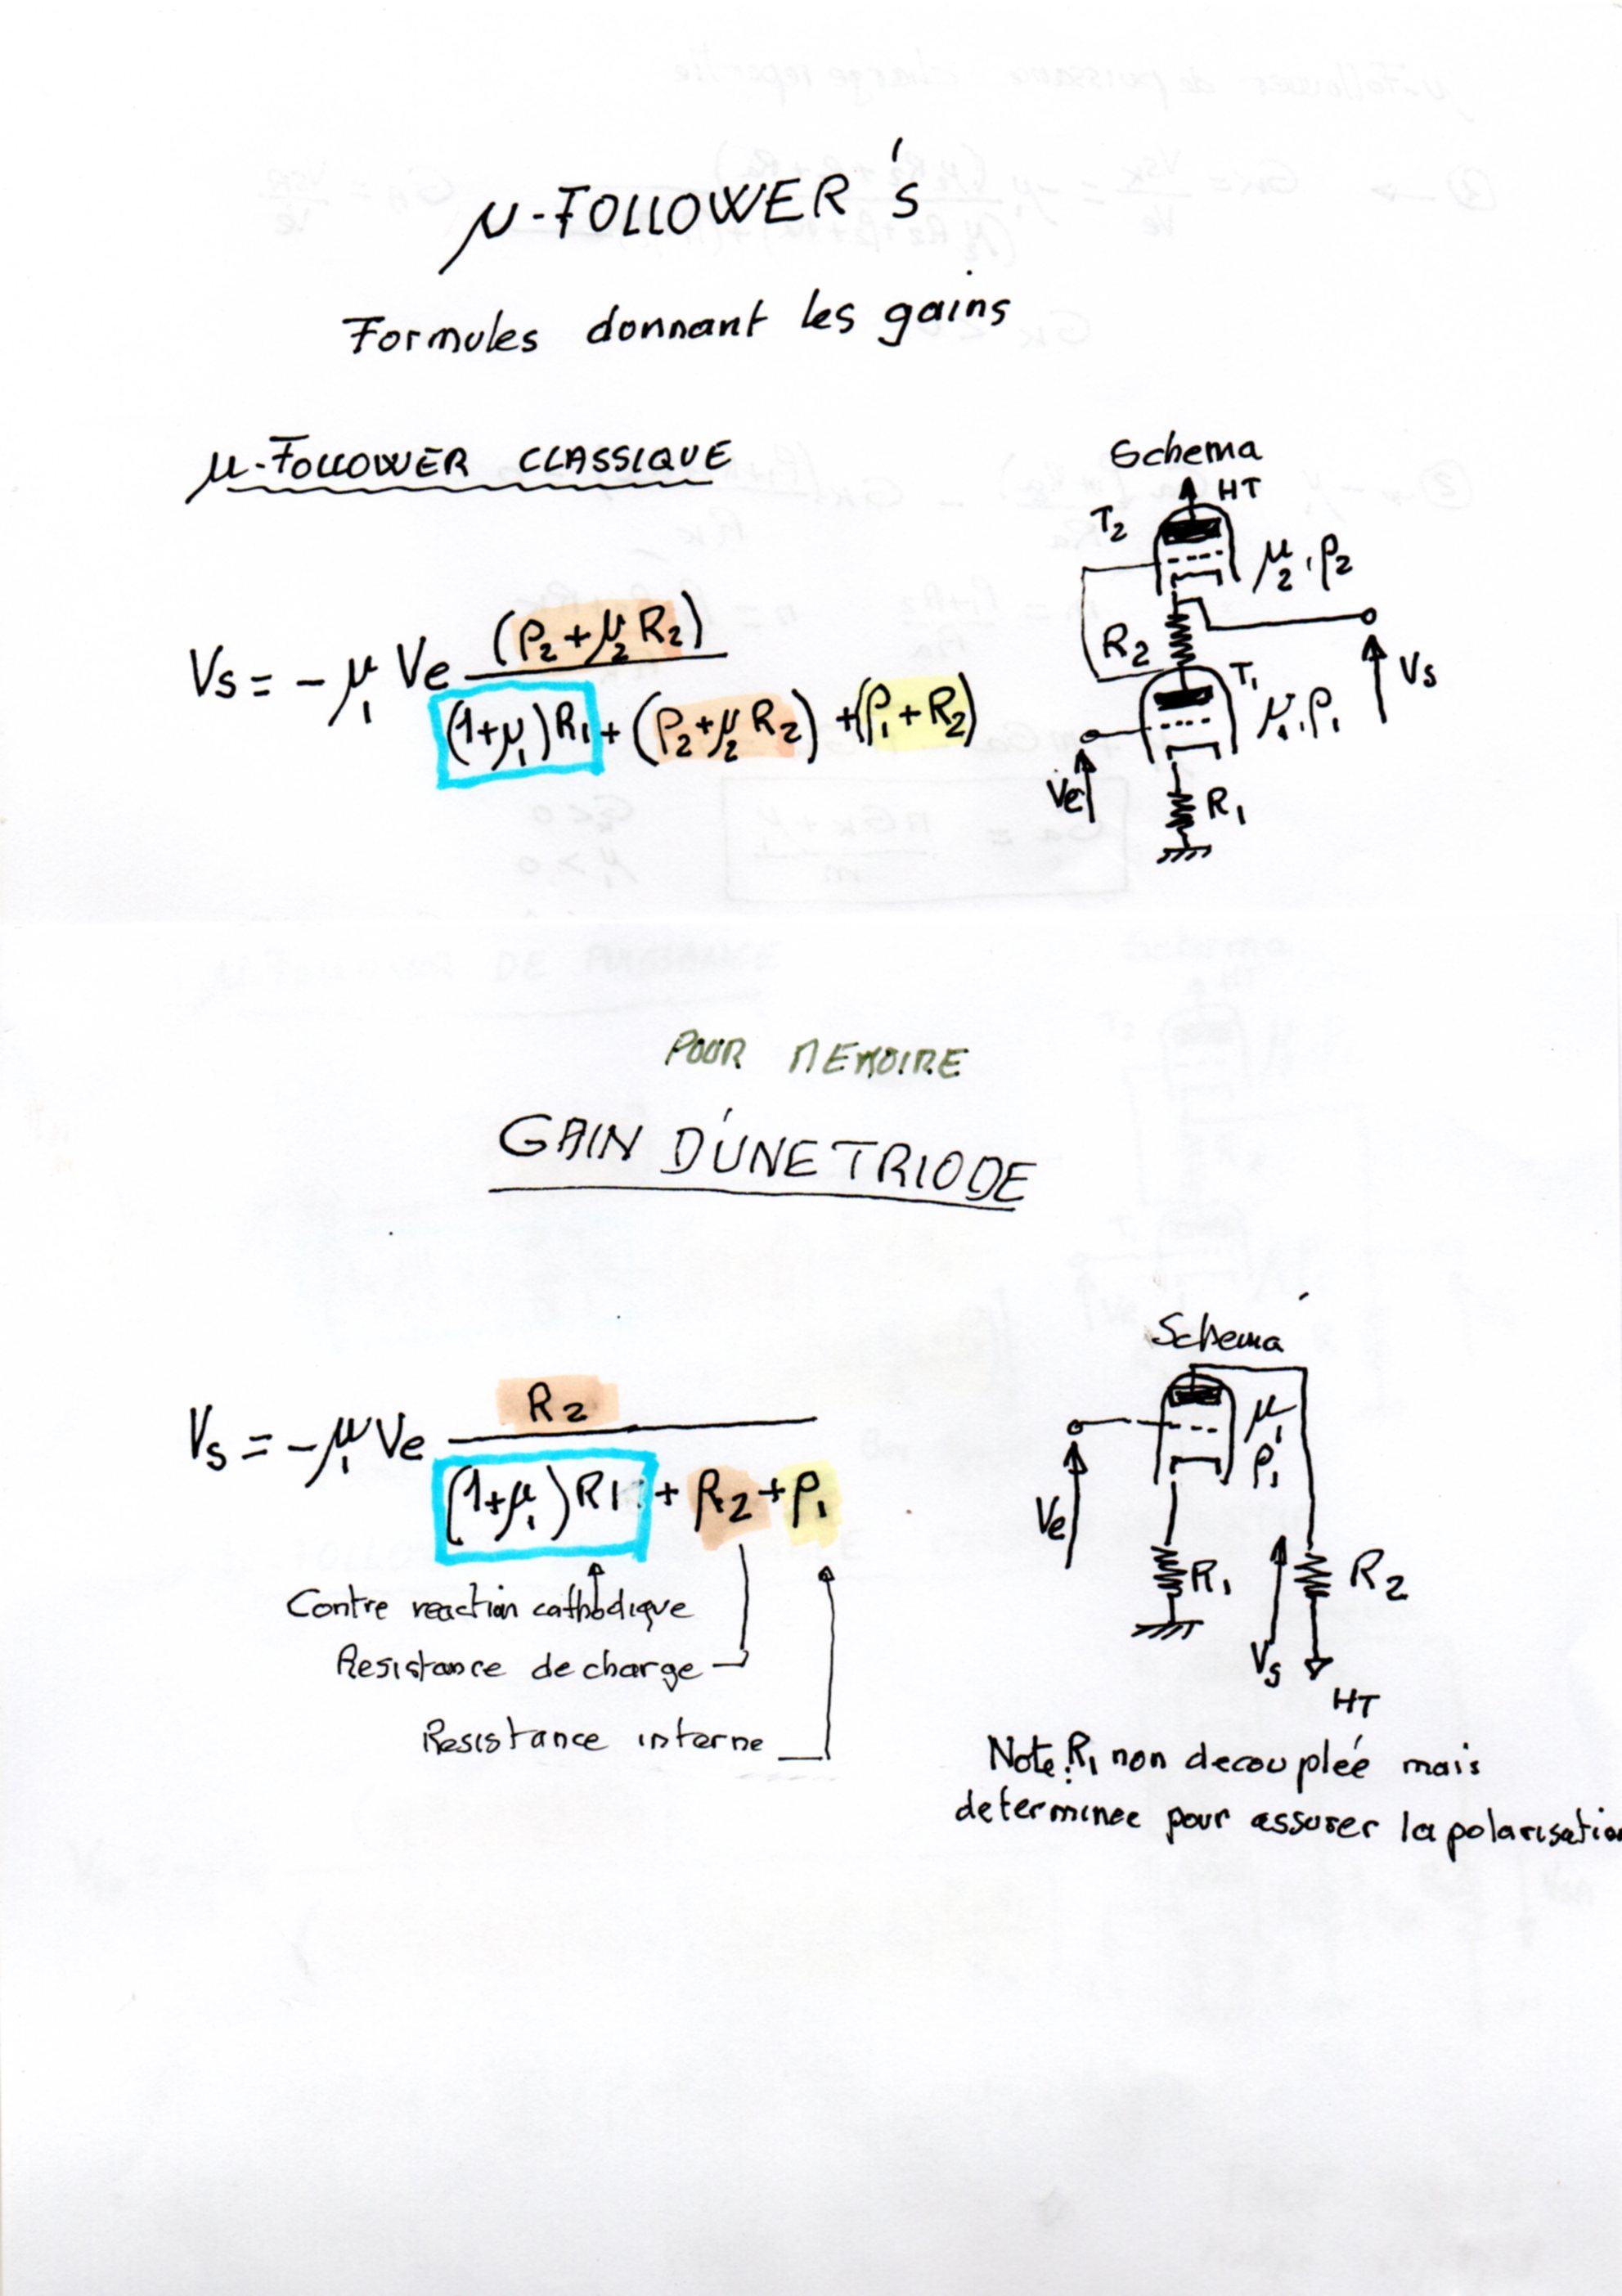 µ-FOLLOWER's
Formules donnant les gains
µ-FOLLOWER CLASSIQUE
Schema
HT
T2
µ2, ρ2
R2
Vs
T1
µ1, ρ1
Ve
R1
Vs = - µ1 Ve (ρ2 + µ2 R2) / (1+µ1)R1 + (ρ2 + µ2 R2) + (ρ1 + R2)
POUR MEMOIRE
GAIN D'UNE TRIODE
Schema
Vs = - µ1 Ve R2 / (1+µ1)R1 + R2 + ρ1
µ1
ρ1
Ve
R1
R2
Vs
HT
Contre reaction cathodique
Resistance de charge
Resistance interne
Note: R1 non decouplée mais
determinee pour assurer la polarisation